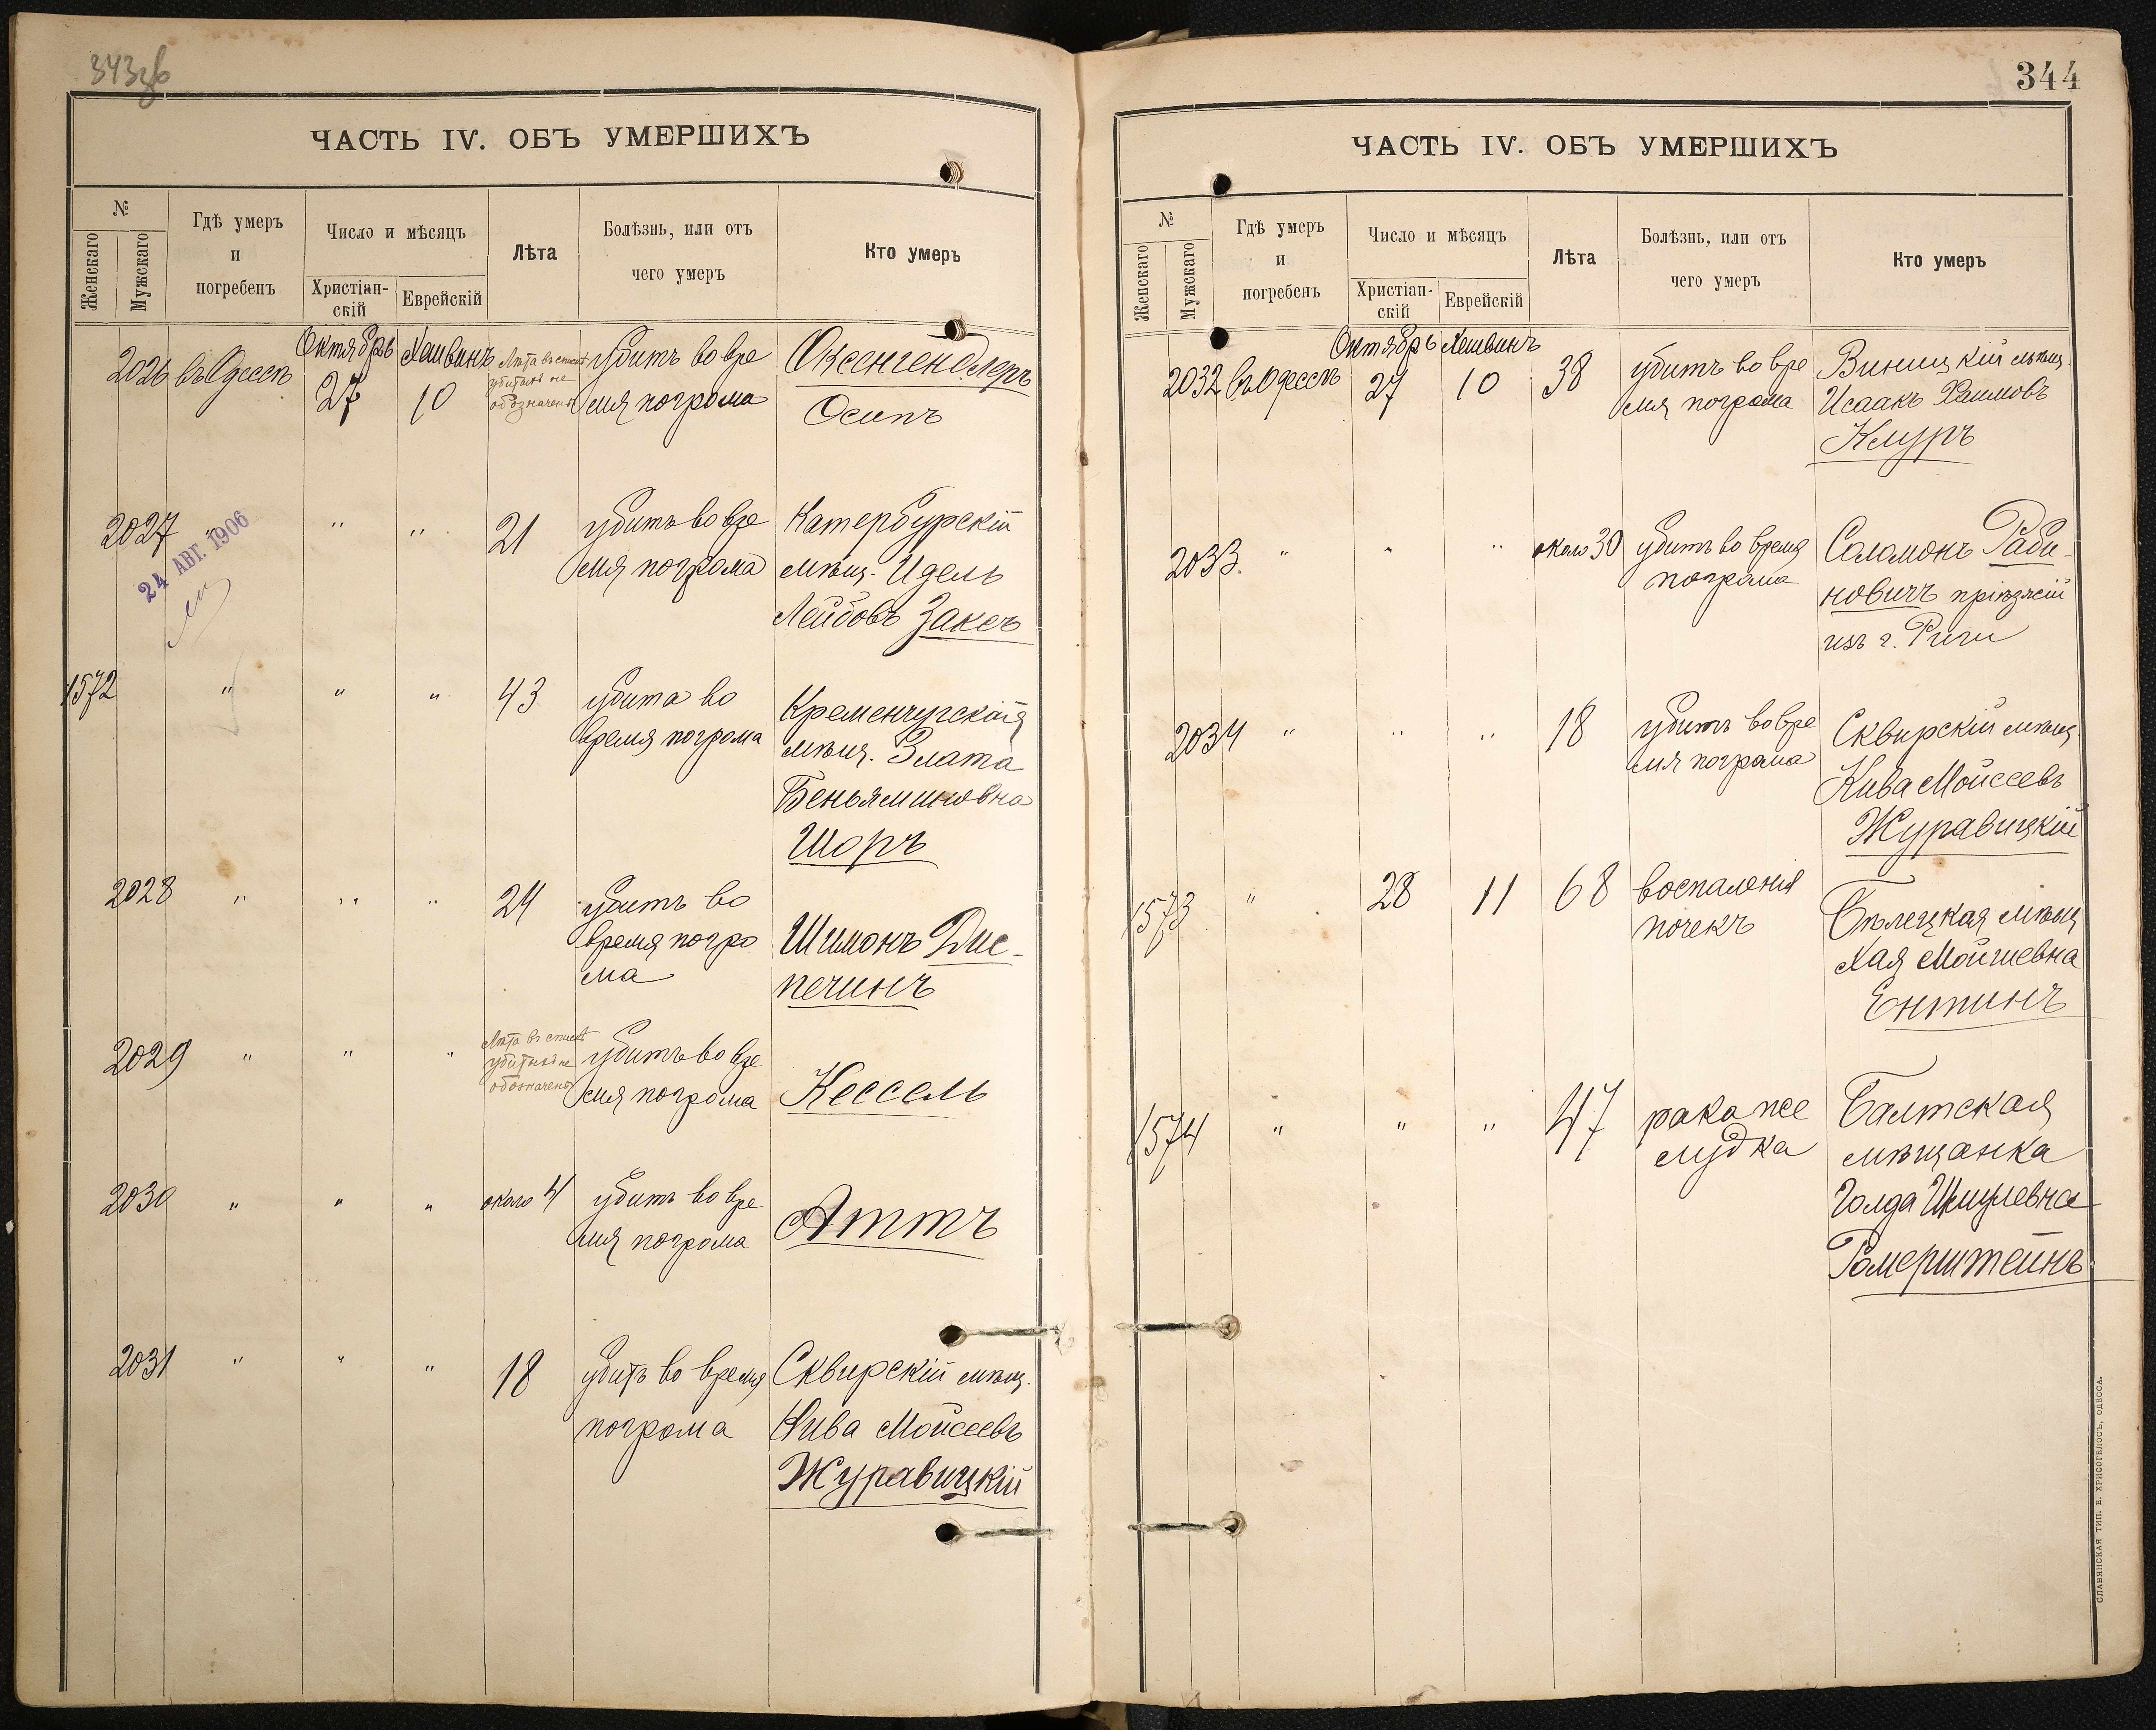 343 об
ЧАСТЬ IV. ОБЪ УМЕРШИХЪ
№
Женскаго
Мужскаго
Гдѣ умеръ
и
погребенъ
Число и мѣсяцъ
Христіан-
скій
Еврейскій
Лѣта
Болѣзнь, или отъ
чего умеръ
Кто умеръ
2026 въ Одессѣ Октябрь 27 Хешвинъ 10 Лѣта въ списке убитыхъ не обозначены убитъ во вре
мя погрома
Оксенгендлеръ
Осипъ
2027 " " " 21 убитъ во вре
мя погрома
Катербурскій
мѣщ. Идель
Лейбовъ Заксъ
24 АВГ. 1906
1572 " " " 43 убита во
время погрома
Кременчугская
мѣщ. Злата
Беньяминовна
Шоръ
2028 " " " 24 убитъ во
время погро
ма
Шимонъ Дис-
печинъ
2029 " " " Лѣта въ списке
убитыхъ не
обозначены
убитъ во вре
мя погрома
Кессель
2030 " " " около 4 убитъ во вре
мя погрома
Аттъ
2031 " " " 18 убитъ во время
погрома
Сквирскій мѣщ.
Кива Мойсеевъ
Журавицкій
344
ЧАСТЬ IV. ОБЪ УМЕРШИХЪ
№
Женскаго
Мужскаго
Гдѣ умеръ
и
погребенъ
Число и мѣсяцъ
Христіан-
скій
Еврейскій
Лѣта
Болѣзнь, или отъ
чего умеръ
Кто умеръ
2032 въ Одессѣ Октябрь 27 Хешвинъ 10 38 убитъ во вре
мя погрома
Виницкій мѣщ.
Исаакъ Хаимовъ
Клуръ
2033. " " " около 30 убитъ во время
погрома
Саламонъ Раби-
новичъ пріѣзжій
изъ г. Риги
2034 " " " 18 убитъ во вре
мя погрома
Сквирскій мѣщ.
Кива Мойсеевъ
Журавицкій
1573 " 28 11 68 воспаленія
почекъ
Бѣлецкая мѣщ
Хая Мойшевна
Ентинъ
1574 " " " 47 рака же
лудка
Балтская
мѣщанка
Голда Шмулевна
Гомерштейнъ
СЛАВЯНСКАЯ ТИП. Е. ХРИСОГЕЛОСЪ, ОДЕССА.